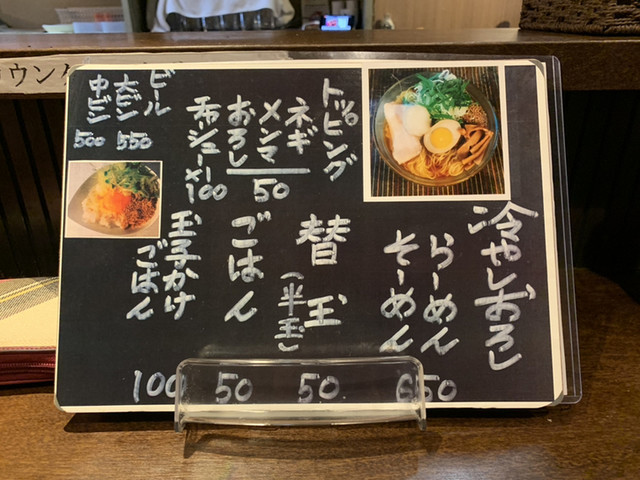 冷やしおろし
らーめん
そーめん
650
替玉
(半玉)
50
ごはん
50
玉子かけ
ごはん
100
トッピング
ネギ
メンマ
おろし
50
チャーシュー
100
ビール
大ビン
550
中ビン
500